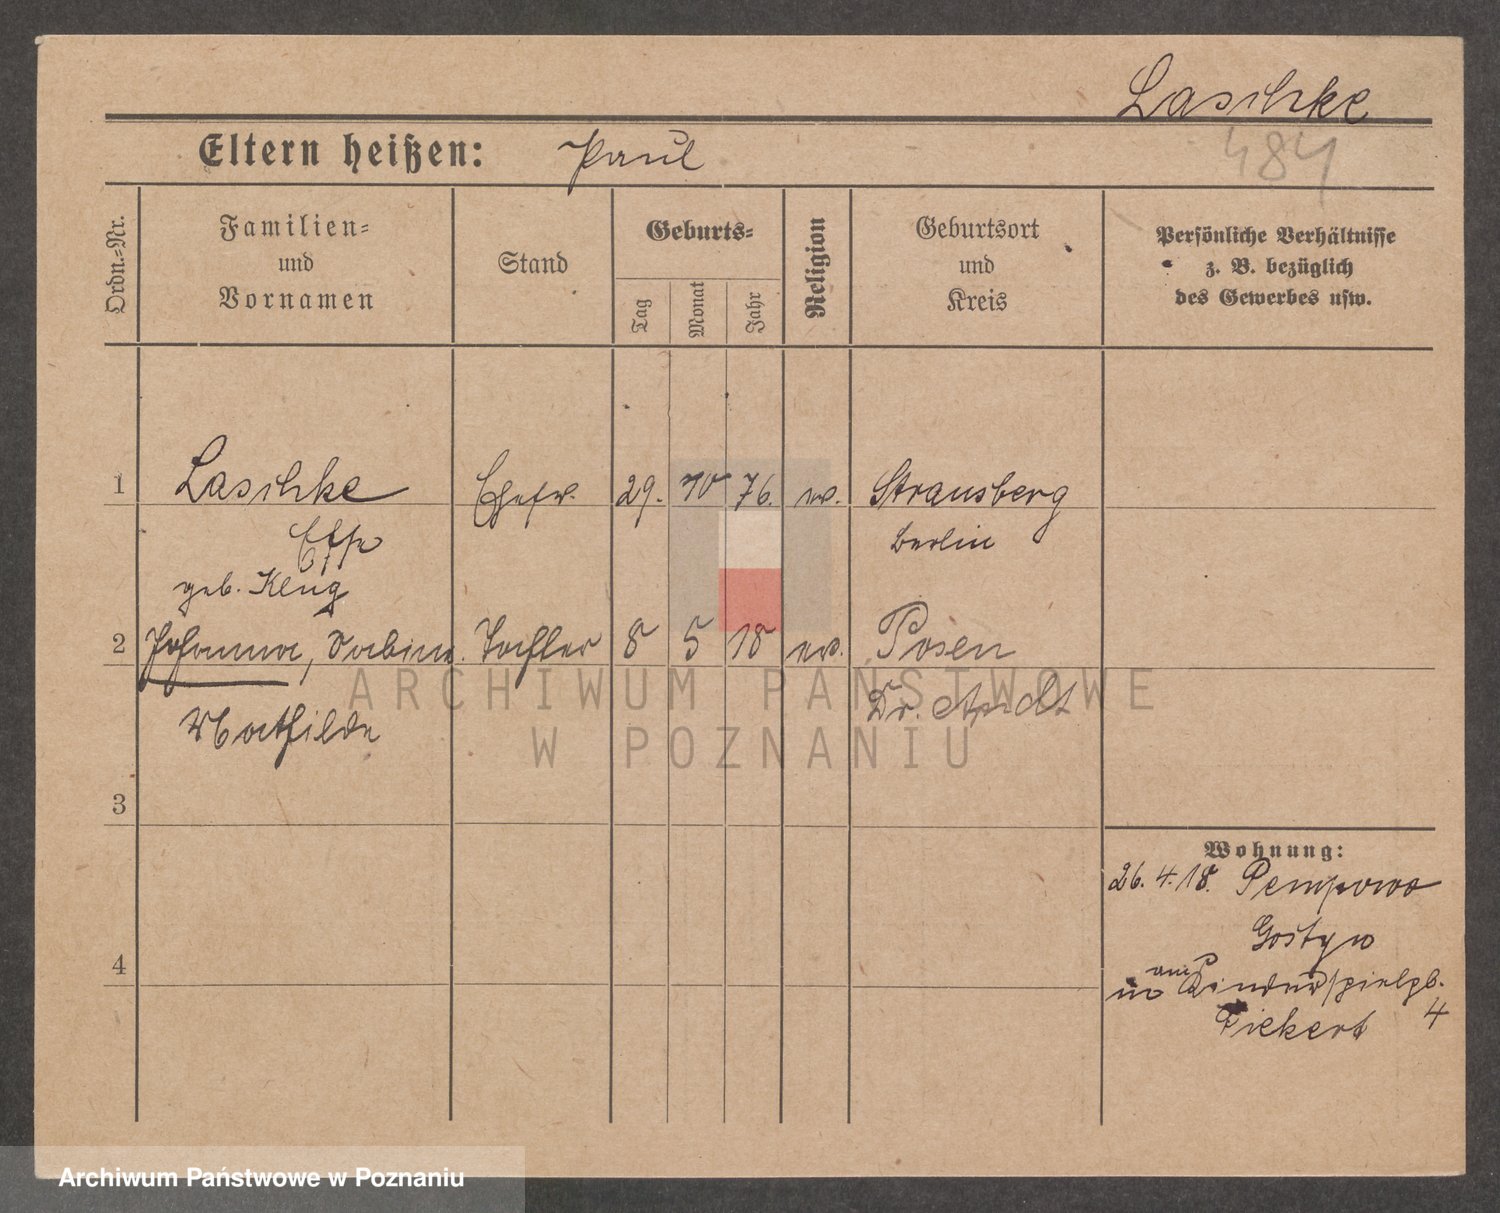 Laschke
484
Eltern heißen: Paul
Ordn.-Nr.
Familien-
und
Vornamen
Stand
Geburts-
Tag
Monat
Jahr
Religion
Geburtsort
und
Kreis
Persönliche Verhältnisse
z. B. bezüglich
des Gewerbes usw.
1 Laschke Ehefr. 29. 10 76. ev. Strausberg
Berlin
geb. Klug
2 Johanna, Sabine Tochter 8 5 18 ev. Posen
Mathilde Dr.
3
4
Wohnung:
26. 4. 18. Pempowo
Gostyn
Kinderspielpl.
Piekert 4
ARCHIWUM PAŃSTWOWE
W POZNANIU
Archiwum Państwowe w Poznaniu